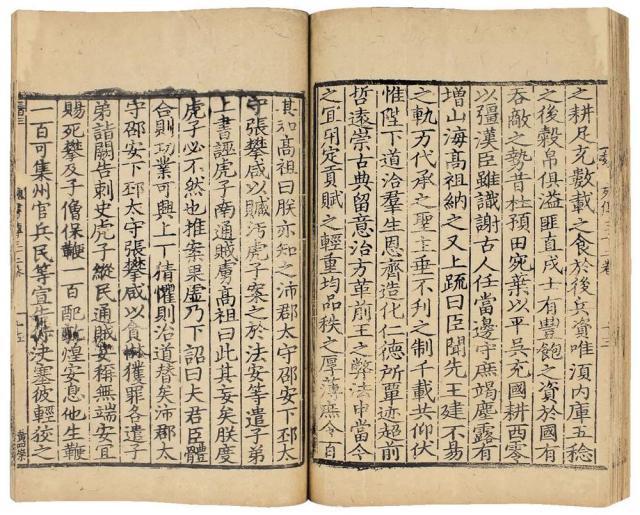 之耕足充數載之食於後兵資唯須内庫五稔
之後穀帛俱溢匪直戍士有豐飽之資於國有
吞敵之勢昔杜預田宛葉以平吳充國耕西零
以彊漢臣雖識謝古人任當邊守庶竭塵露有
增山海高祖納之又上疏曰臣聞先王建不易
之軌万代承之聖主垂不刋之制千載共仰伏
惟陛下道洽羣生恩齊造化仁德所覃迹超前
哲遠崇古典留意治方革前王之弊法申當今
之宜用定貢賦之輕重均品秩之厚薄庶令百
其和高祖曰朕亦知之沛郡太守邵安下邳太
守張攀咸以贓汚虎子案之於法安等遣子弟
上書誣虎子南通賊虜高祖曰此其妄矣朕度
虎子必不然也推案果虚乃下詔曰夫君臣體
合則功業可興上下猜懼則治道替矣沛郡太
守邵安下邳太守張攀咸以貪惏獲罪各遣子
弟詣闕告刺史虎子縱民通賊妄稱無端安宜
賜死攀及子僧保鞭一百配敦煌安息他生鞭
一百可集州官兵民等宣告行决塞彼輕狡之